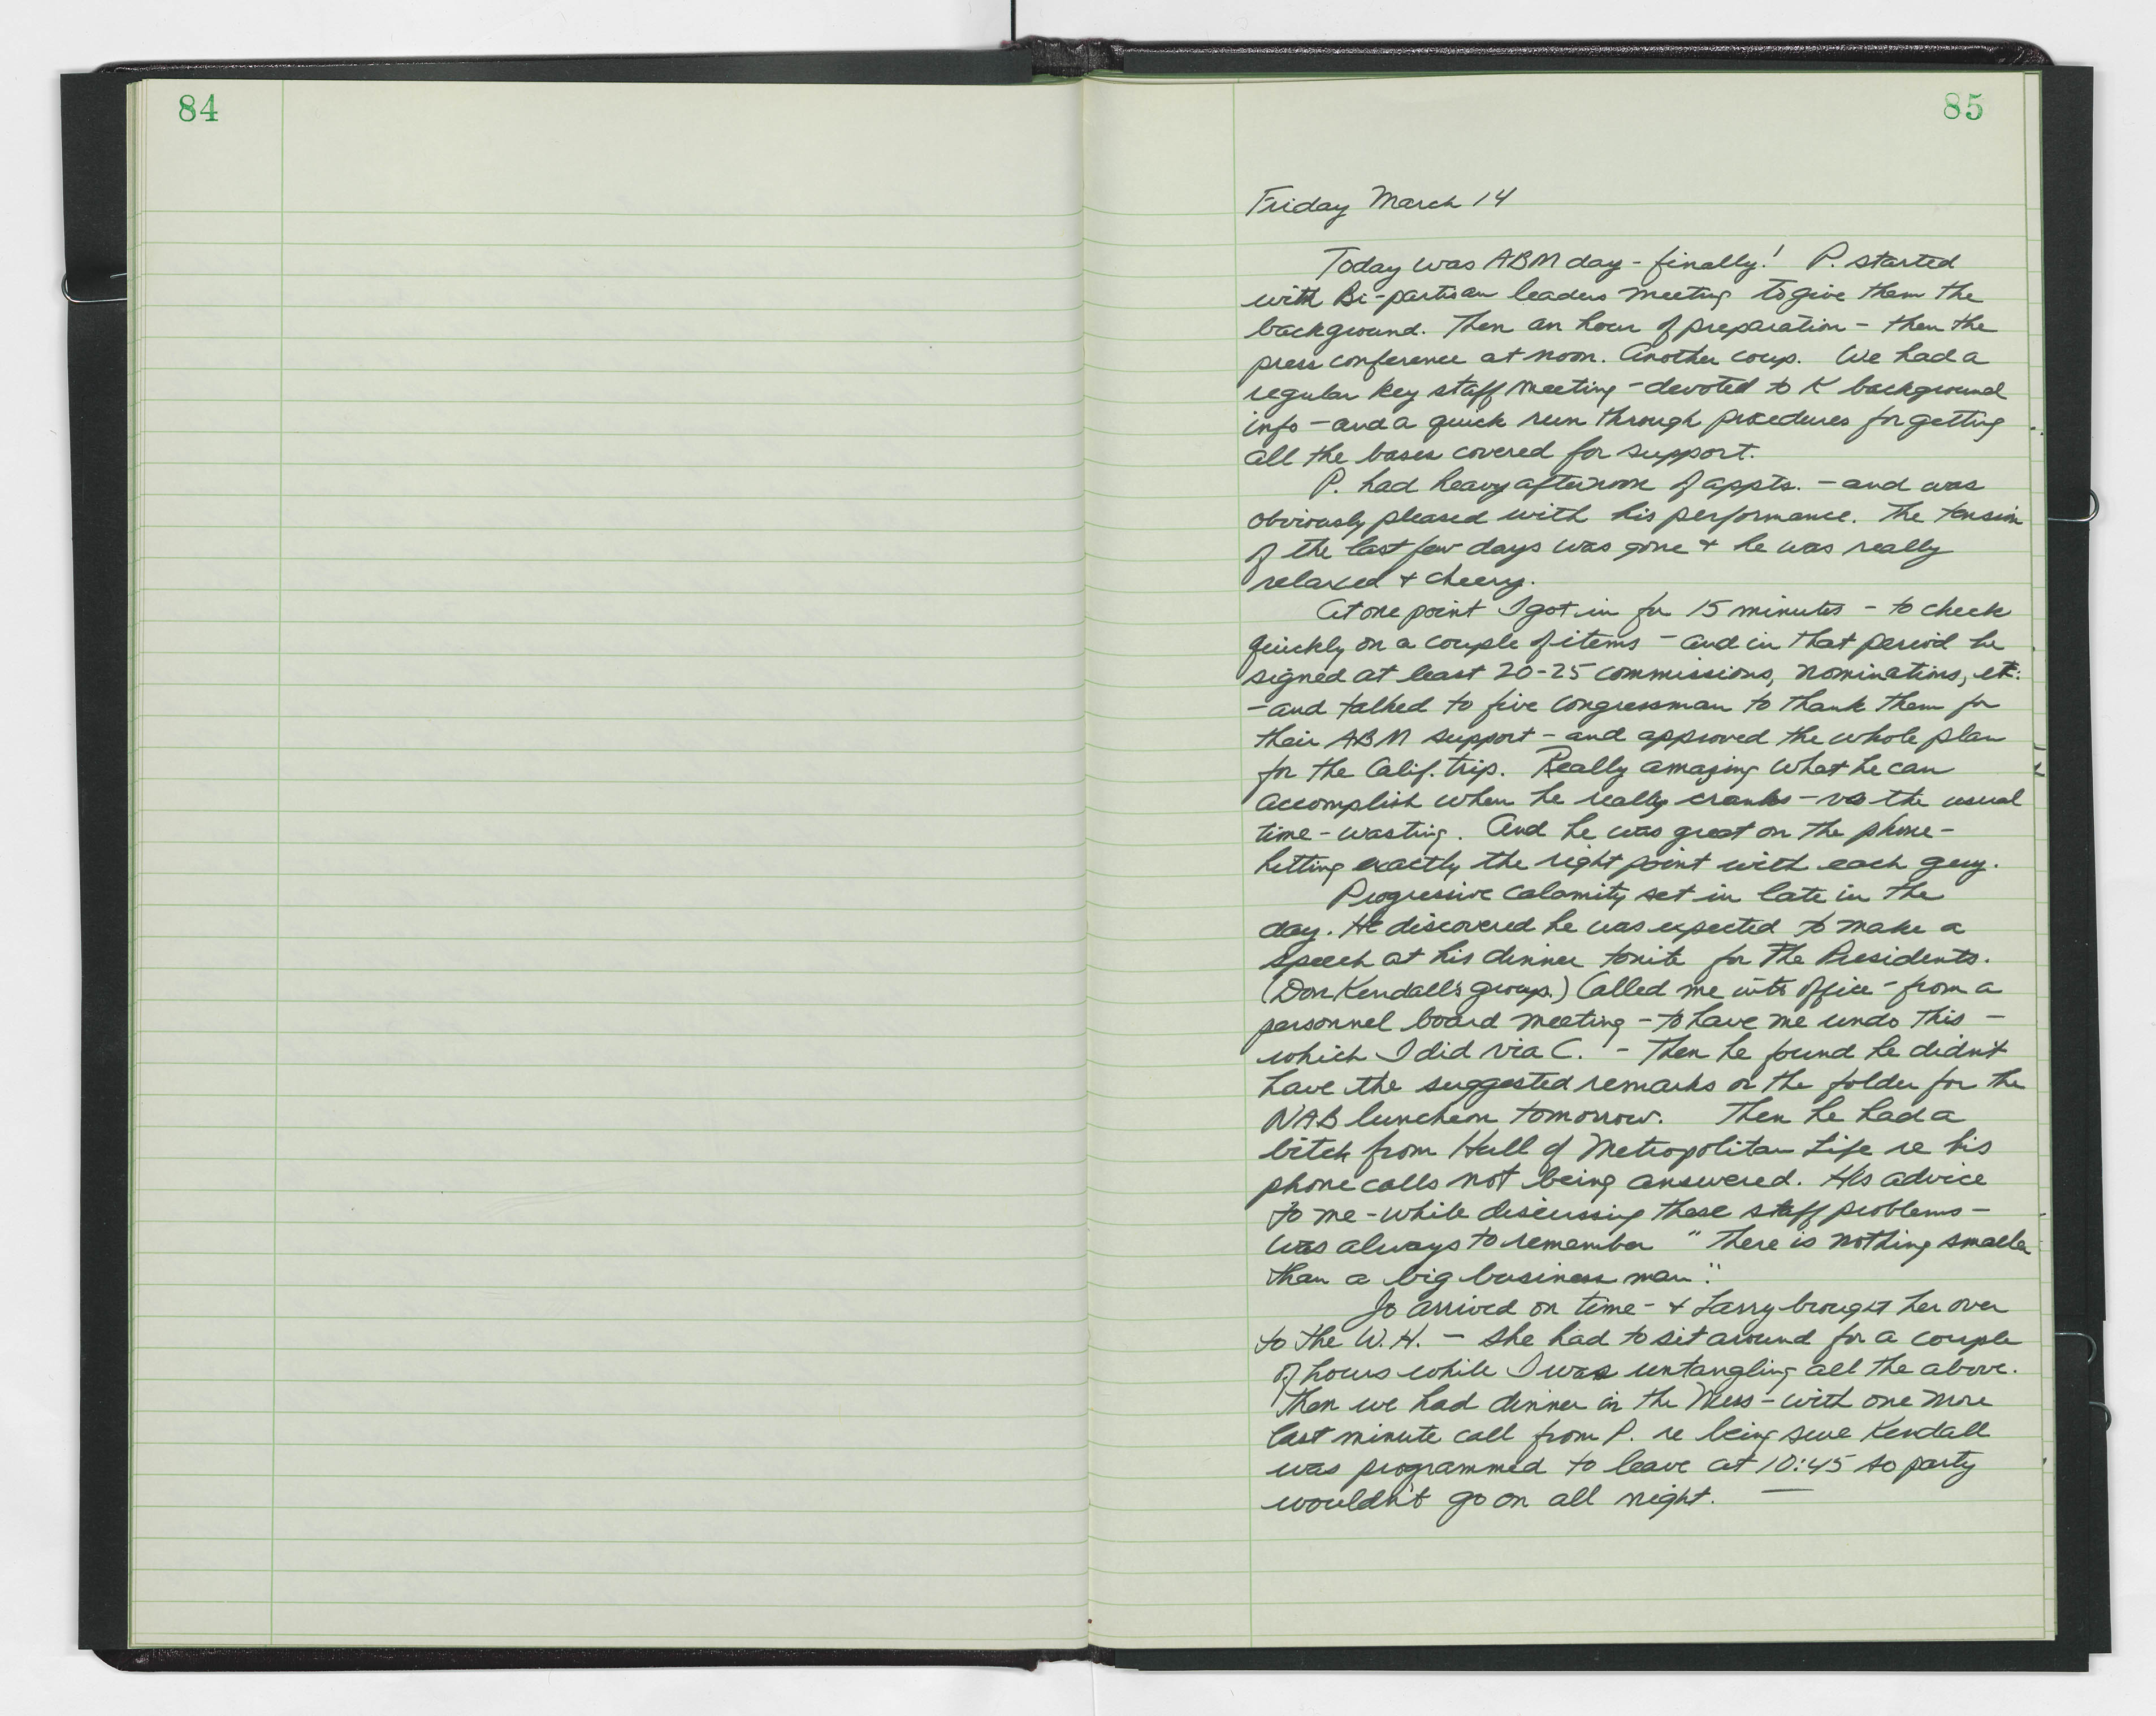 84
85
Friday March 14
Today was ABM day - finally! P. started
with Bi-partisan leaders meeting to give them the
background. Then an hour of preparation - then the
press conference at noon. Another coup. We had a
regular key staff meeting - devoted to K background
info - and a quick run through procedures for getting
all the bases covered for support.
P. had heavy afternoon of appts. - and was
obviously pleased with his performance. The tension
of the last few days was gone + he was really
relaxed + cheery.
At one point I got in for 15 minutes - to check
quickly on a couple of items - and in that period he
signed at least 20-25 commissions, nominations, etc.
- and talked to five congressman to thank them for
their ABM support - and approved the whole plan
for the Calif. trip. Really amazing what he can
accomplish when he really cranks - vs the usual
time-wasting. And he was great on the phone -
hitting exactly the right point with each guy.
Progressive calamity set in late in the
day. He discovered he was expected to make a
speech at his dinner tonite for The Presidents.
(Don Kendall's group.) Called me into office - from a
personnel board meeting - to have me undo this -
which I did via C. - Then he found he didn't
have the suggested remarks or the folder for the
NAB luncheon tomorrow. Then he had a
bitch from Hull of Metropolitan Life re his
phone calls not being answered. His advice
to me - while discussing these staff problems -
was always to remember "there is nothing smaller
than a big business man".
Jo arrived on time - + Larry brought her over
to the W.H. - She had to sit around for a couple
of hours while I was untangling all the above.
Then we had dinner in the Mess - with one more
last minute call from P. re being sure Kendall
was programmed to leave at 10:45 so party
wouldn't go on all night. —